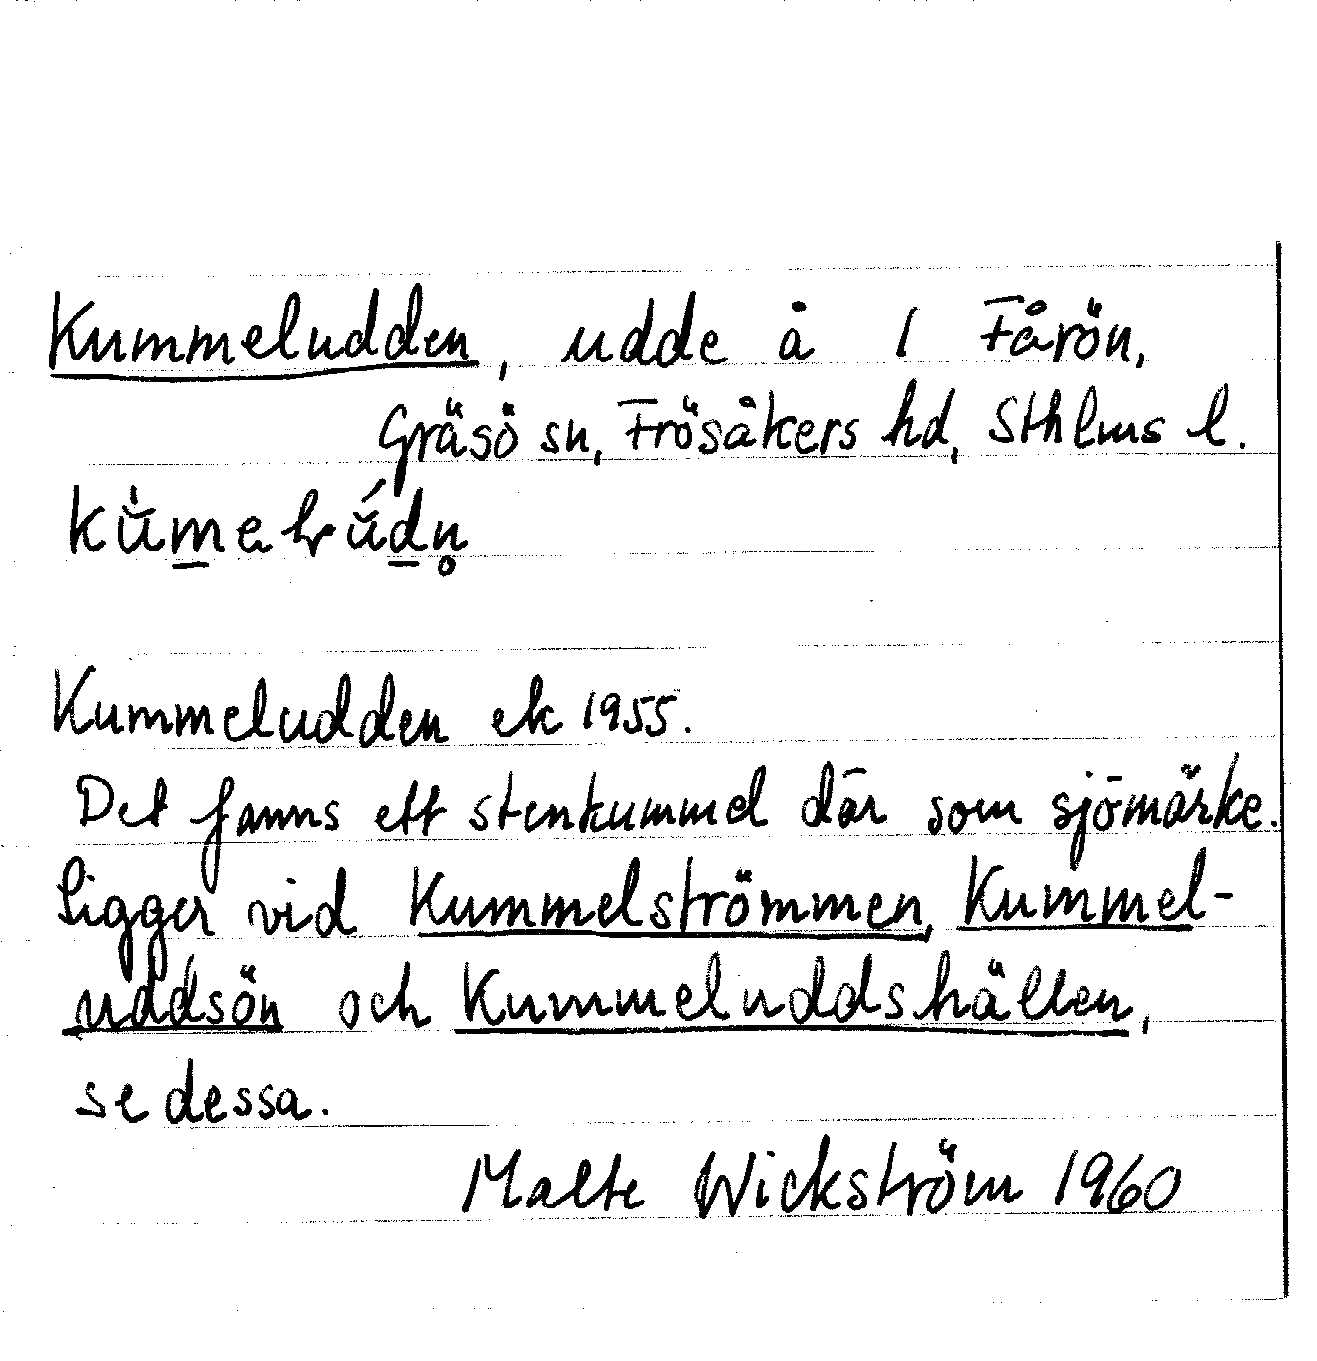 Kummeludden, udde å 1 Fårön,
Gräsö sn, Frösåkers hd, Sthlms l.
Kummeludden ek 1955.
Det fanns ett stenkummel där som sjömärke.
Ligger vid Kummelströmmen, Kummel-
uddsön och Kummeluddshällen,
se dessa.
Malte Wickström 1960